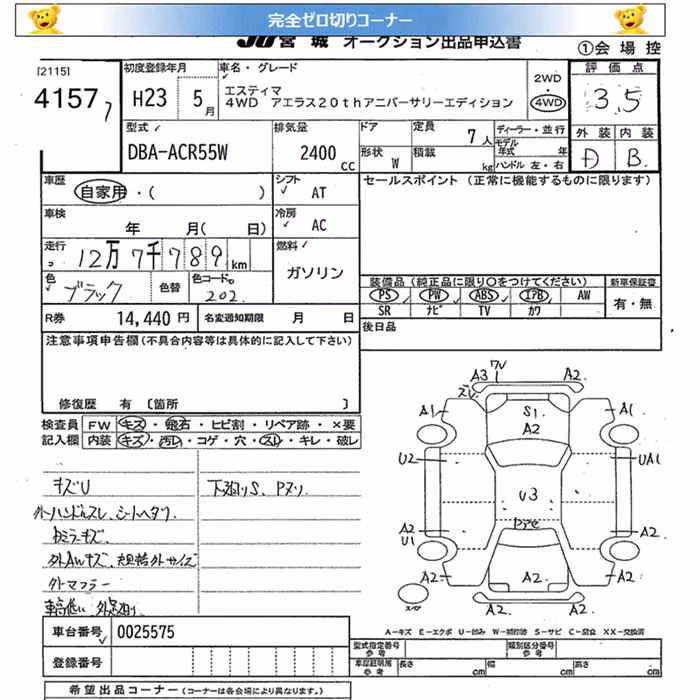 完全ゼロ切りコーナー
JU宮城 オークション出品申込書
①会場控
[2115]
4157 7
初度登録年月
H23 5月
車名・グレード
エスティマ
4WD アエラス20thアニバーサリーエディション
2WD
・
4WD
評価点
3.5
外装 内装
D B
型式
DBA-ACR55W
排気量
2400 cc
ドア
形状 W
定員 7人
積載 kg
ディーラー・並行
モデル年式 年
ハンドル 左・右
車歴
自家用・( )
車検
年 月( 日)
走行
12万7千789km
色 ブラック
色替
色コードNo.
202
シフト AT
冷房 AC
燃料 ガソリン
セールスポイント (正常に機能するものに限ります)
装備品 (純正品に限り○をつけてください)
新車保証書
PS PW ABS エアB AW
SR ナビ TV カワ
有・無
R券 14,440円
名変通知期限 月 日
後日品
注意事項申告欄(不具合内容等は具体的に記入して下さい)
修復歴 有 〔箇所 〕
検査員記入欄
FW キズ・飛石・ヒビ割・リペア跡・×要
内装 キズ・汚レ・コゲ・穴・スレ・キレ・破レ
キズU
下廻りS、Pヌリ.
外ハンドルスレ、シートヘタリ.
外AWキズ、
外マフラー
車高低い、
車台番号 0025575
登録番号
希望出品コーナー (コーナーは各会場により異なります。)
A3 ワレ A2
スレ
A1 S1 A1
A2
U2 UA1
U3
A2 A2
U1
A2 A2 A2
A2 A2
スペア
A-キズ E-エクボ U-凹み W-補修跡 S-サビ C-腐食 XX-交換済
型式指定番号 参考
類別区分番号 参考
車庫証明用 参考
長さ cm 幅 cm 高さ cm